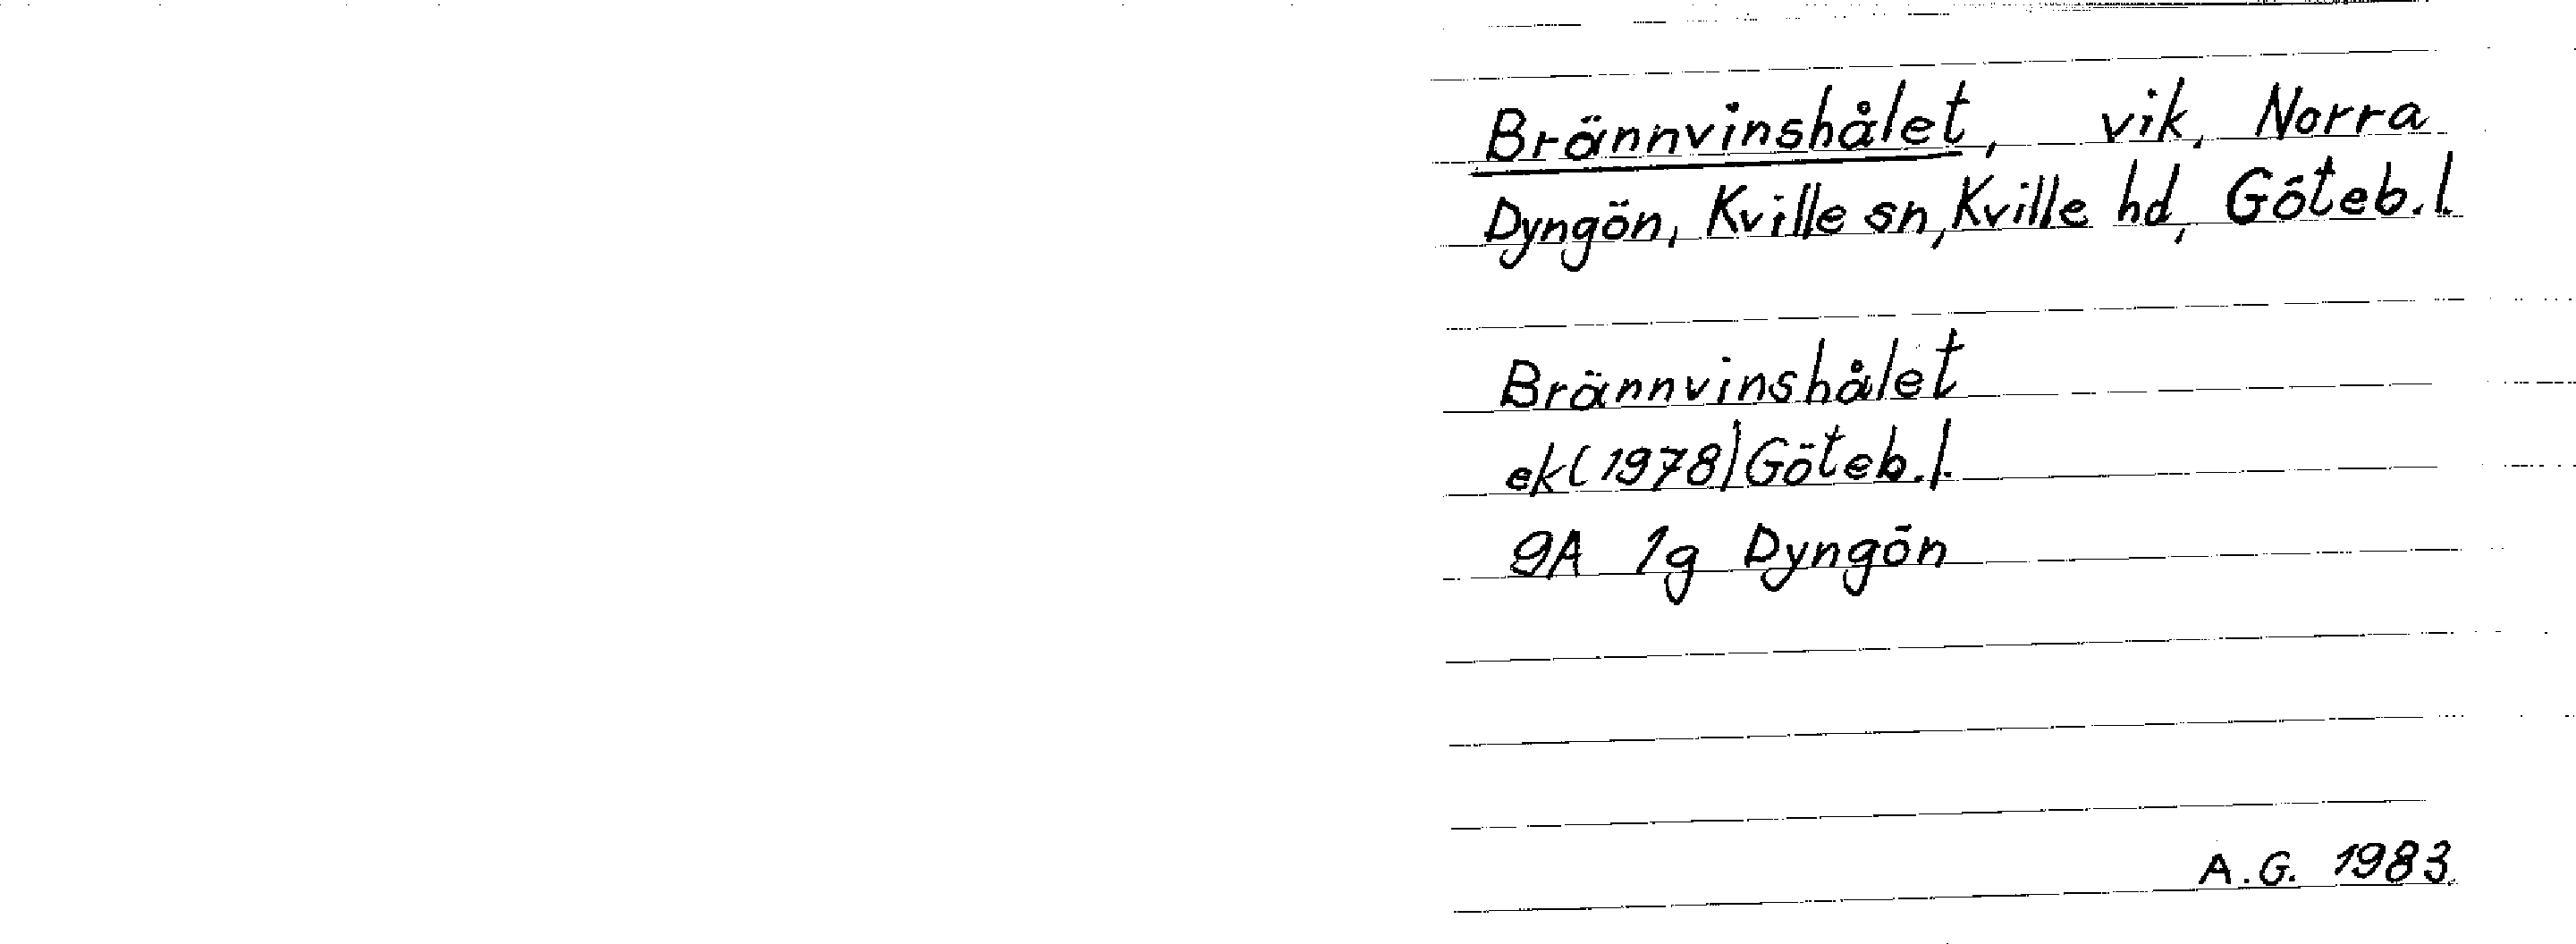 Brännvinshålet, vik, Norra
Dyngön, Kville sn, Kville hd, Göteb.l.
Brännvinshålet
ek(1978)Göteb.l.
9A 1g Dyngön
A.G. 1983.